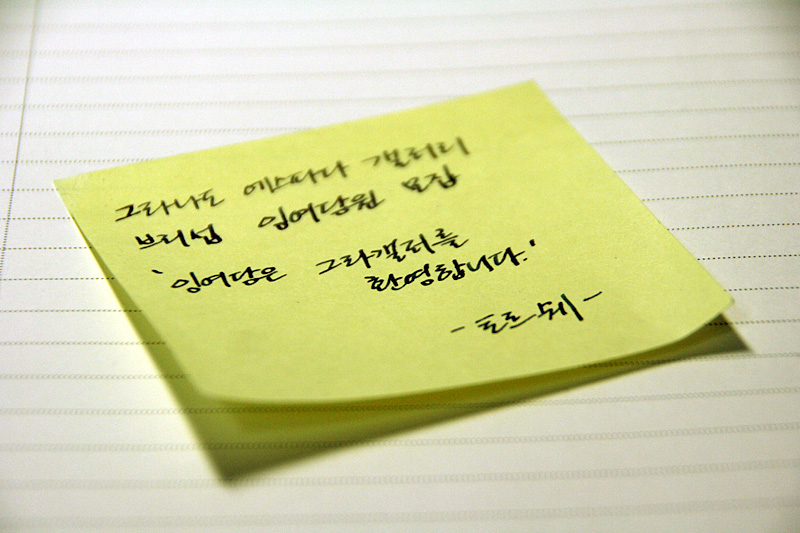 그라나도 에스파다 갤러리
브리섭 잉여당원 모집
'잉여당은 그라갤러를
환영합니다.'
- 토르쉐 -